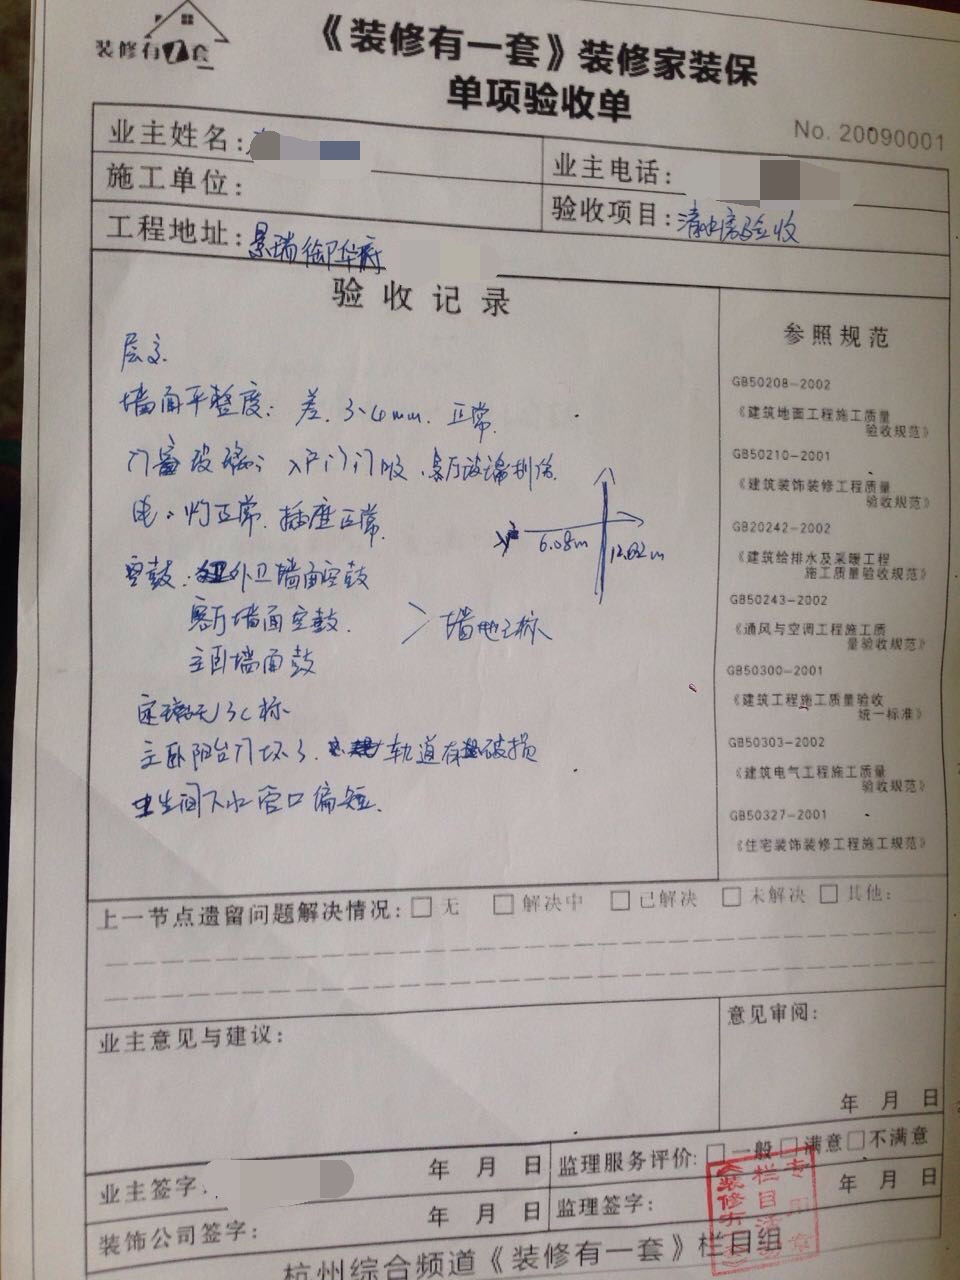 装修有一套
《装修有一套》装修家装保
单项验收单
No. 20090001
业主姓名:
业主电话:
施工单位:
验收项目: 清水房验收
工程地址: 景瑞御华府
验收记录
层高
墙面平整度: 差. 3-4mm. 正常.
门窗玻璃: 入户门门吸. 客厅玻璃划伤
电: 灯正常. 插座正常.
6.08m
12.62m
空鼓: 外卫墙面空鼓
客厅墙面空鼓.
主卧墙面鼓
墙地已标
玻璃无3C标
主卧阳台门坏了. 轨道有破损
卫生间下水管口偏短.
参照规范
GB50208-2002
《建筑地面工程施工质量
验收规范》
GB50210-2001
《建筑装饰装修工程质量
验收规范》
GB20242-2002
《建筑给排水及采暖工程
施工质量验收规范》
GB50243-2002
《通风与空调工程施工质
量验收规范》
GB50300-2001
《建筑工程施工质量验收
统一标准》
GB50303-2002
《建筑电气工程施工质量
验收规范》
GB50327-2001
《住宅装饰装修工程施工规范》
上一节点遗留问题解决情况: □ 无 □ 解决中 □ 已解决 □ 未解决 □ 其他:
业主意见与建议:
意见审阅:
年 月 日
业主签字:
年 月 日
监理服务评价: □一般 □满意 □不满意
装饰公司签字:
年 月 日
监理签字:
年 月 日
杭州综合频道《装修有一套》栏目组